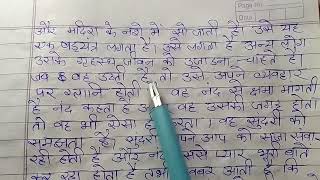 और मदिरा के नशे में सो जाती है। उसे यह
एक षड्यंत्र लगता है। उसे लगता है अन्य लोग
उसके गृहस्थ जीवन को उजाड़ना चाहते है।
जब वह उठती है तो उसे अपने व्यवहार
पर ग्लानि होती वह नंद से क्षमा मांगती
है नंद कहता है उसकी जगह होता
तो वह भी ऐसा करता। वह सुंदरी को
समझाता है। सुंदरी अपने आप को
रही होती है और नंद उससे प्यार भरी बाते
कर रहा होता है तभी खबर आती है कि